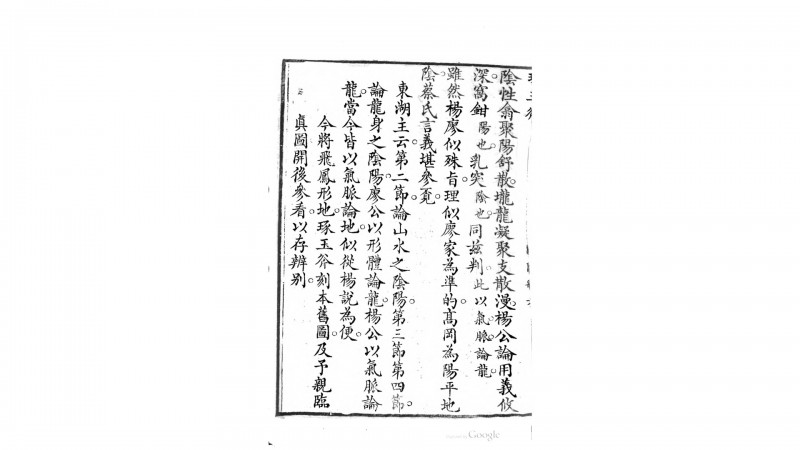 陰性翕聚陽舒散壠龍凝聚支散漫楊公論用義攸
深窩鉗陽也乳突陰也同玆判此以氣脈論龍
雖然楊廖似殊旨理似廖家為準的高岡為陽平地
陰蔡氏言義堪參究
東湖主云第二節論山水之陰陽第三節第四節
論龍身之陰陽廖公以形體論龍楊公以氣脈論
龍當今皆以氣脈論地似從楊說為便
今將飛鳳形地琢玉斧刻本舊圖及予親臨
眞圖開後參看以存辨別
Google